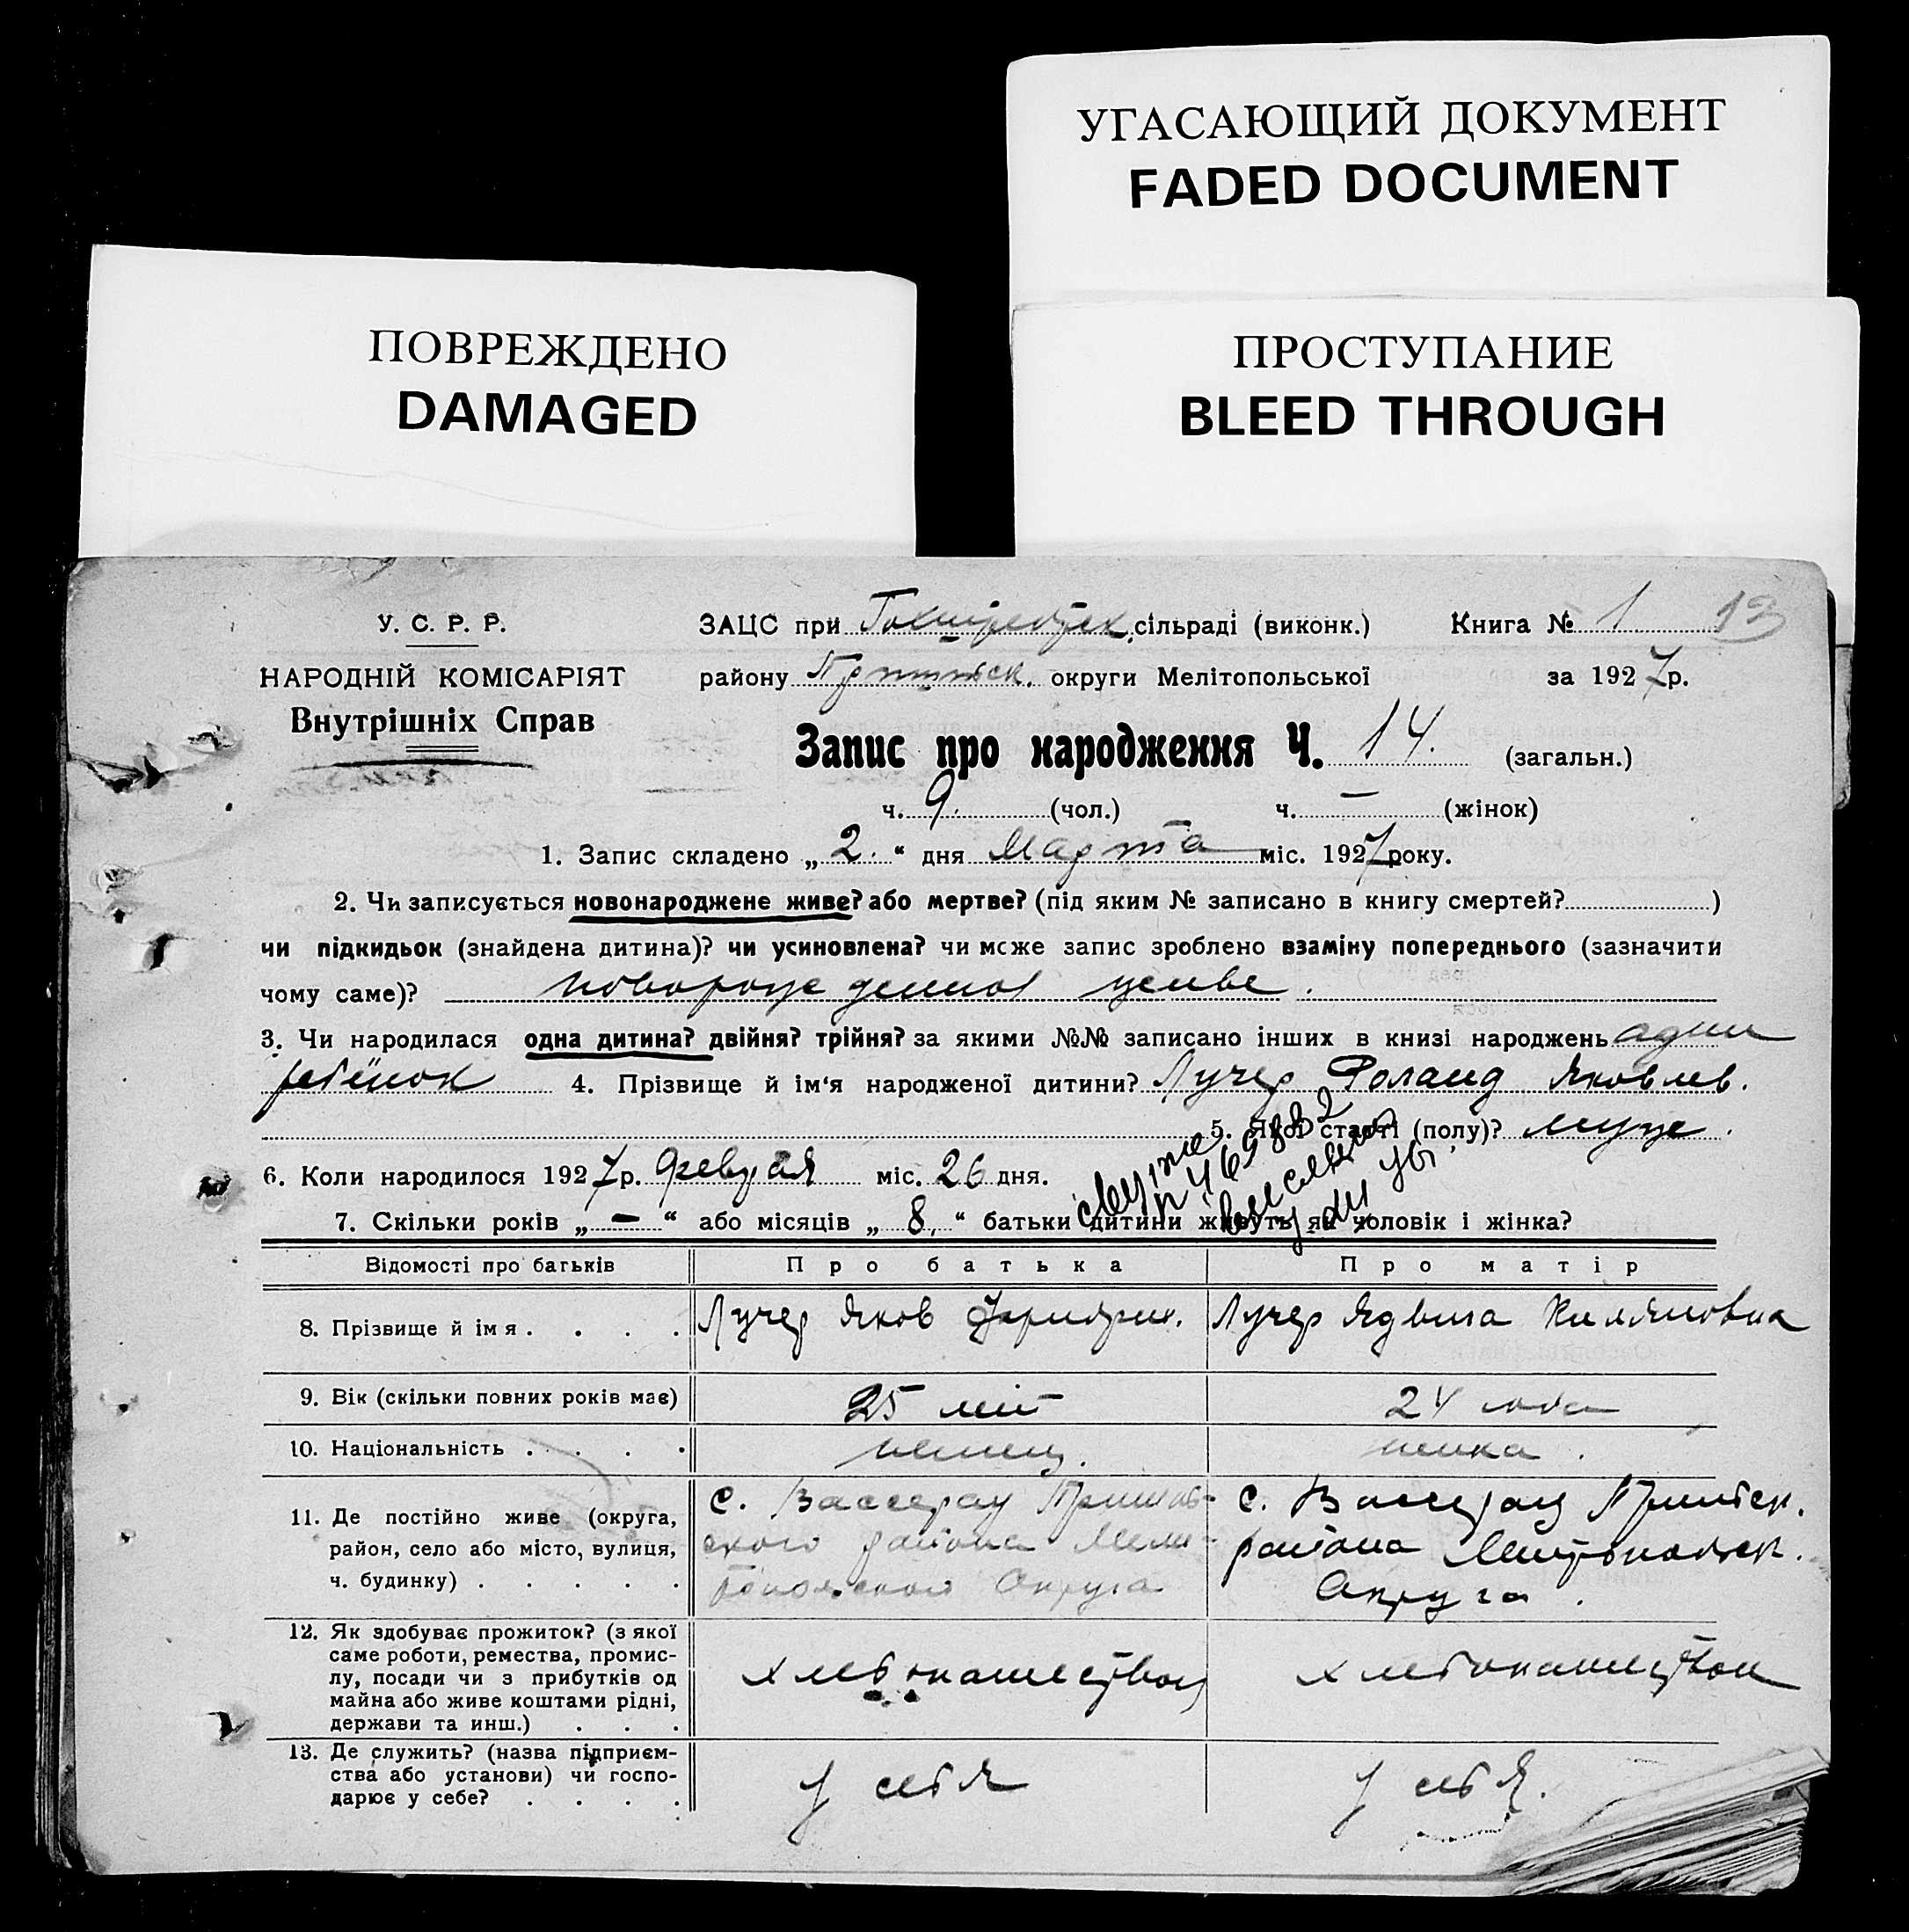 УГАСАЮЩИЙ ДОКУМЕНТ
FADED DOCUMENT
ПОВРЕЖДЕНО
DAMAGED
ПРОСТУПАНИЕ
BLEED THROUGH
У. С. Р. Р.
НАРОДНІЙ КОМІСАРІЯТ
Внутрішніх Справ
ЗАЦС при сільраді (виконк.) Книга № 1 13
району округи Мелітопольської за 1927 р.
Запис про народження Ч. 14. (загальн.)
ч. 9. (чол.) ч. — (жінок)
1. Запис складено „ 2. “ дня Марта міс. 1927 року.
2. Чи записується новонароджене живе? або мертве? (під яким № записано в книгу смертей? )
чи підкидьок (знайдена дитина)? чи усиновлена? чи може запис зроблено взаміну попереднього (зазначити
чому саме)?
3. Чи народилася одна дитина? двійня? трійня? за якими №№ записано інших в книзі народжень адин
ребёнок 4. Прізвище й ім‘я народженої дитини? Лучер Роланд Яковлев.
5. Якої статі (полу)? муж.
6. Коли народилося 1927 р. Февраля міс. 26 дня.
7. Скільки років „ — “ або місяців „ 8. “ батьки дитини живуть як чоловік і жінка?
Відомості про батьків Про батька Про матір
8. Прізвище й імя . . . . Лучер Яков Фридрих. Лучер Ядвига Килияновна
9. Вік (скільки повних років має) 25 лет 24 года
10. Національність . . . . немец. немка .
11. Де постійно живе (округа,
район, село або місто, вулиця,
ч. будинку) . . . . .
с. Вассерау Пришиб-
ского района Мели-
топольской Округа
с. Вассерау Пришибск.
района Мелитопольск.
Округа .
12. Як здобуває прожиток? (з якої
саме роботи, ремества, промис-
лу, посади чи з прибутків од
майна або живе коштами рідні,
держави та инш.) . . .
хлебопашеством хлебопашеством
13. Де служить? (назва підприєм-
ства або установи) чи госпо-
дарює у себе? . . . .
у себя у себя.